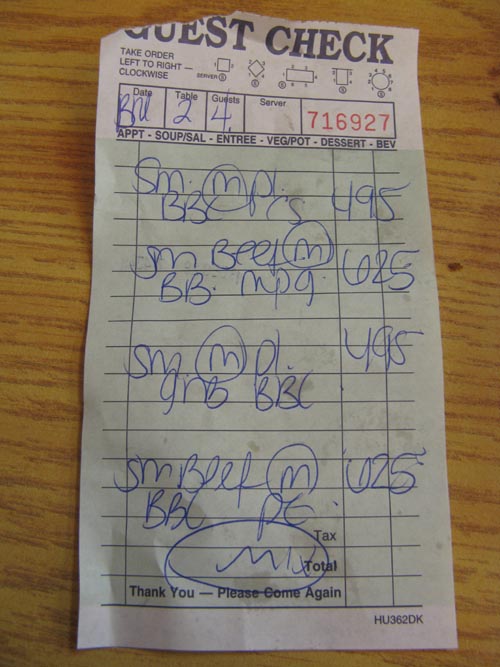 GUEST CHECK
TAKE ORDER
LEFT TO RIGHT —
CLOCKWISE
SERVER
Date Table Guests Server
2 4 716927
APPT - SOUP/SAL - ENTREE - VEG/POT - DESSERT - BEV
Sm. m pl. 495
BBC CS
Sm Beef m 625
BB. mpg.
Sm m pl. 495
gnb BBC
Sm Beef m 625
BBC PE
Tax
mix Total
Thank You — Please Come Again
HU362DK